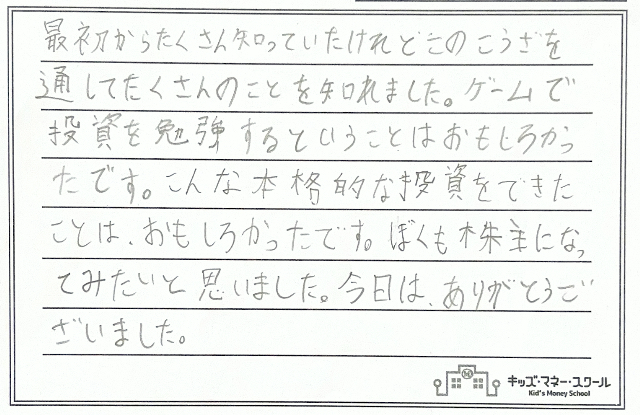 最初からたくさん知っていたけれどこのこうざを
通してたくさんのことを知れました。ゲームで
投資を勉強するということはおもしろかっ
たです。こんな本格的な投資をできた
ことは、おもしろかったです。ぼくも株主になっ
てみたいと思いました。今日は、ありがとうご
ざいました。
キッズ・マネー・スクール
Kid's Money School